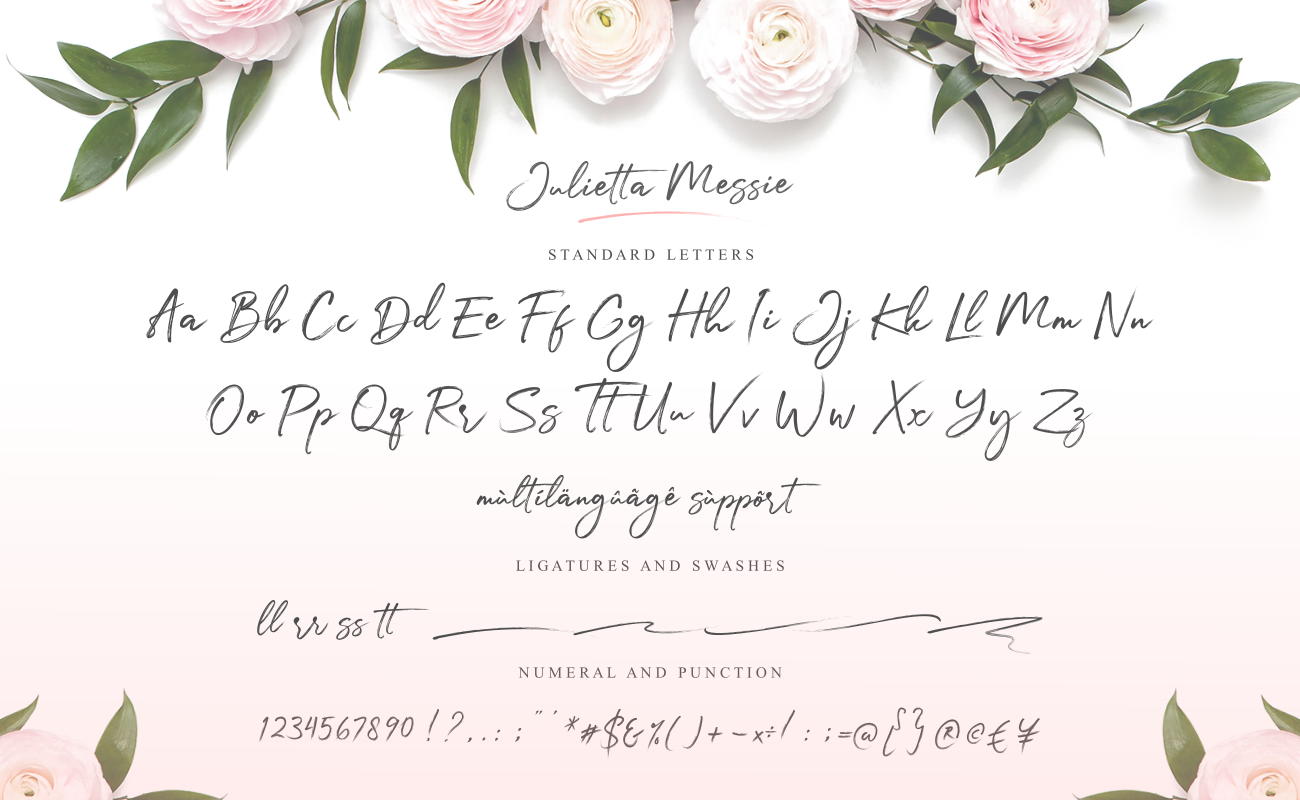 Julietta Messie
STANDARD LETTERS
Aa Bb Cc Dd Ee Ff Gg Hh Ii Jj Kk Ll Mm Nn
Oo Pp Qq Rr Ss Tt Uu Vv Ww Xx Yy Zz
mùltílängûãgê sùppõrt
LIGATURES AND SWASHES
ll rr ss tt
NUMERAL AND PUNCTION
1234567890 ! ? , . : ; " ' * # $ & % ( ) + - x ÷ / : ; = @ { } ® © € ¥